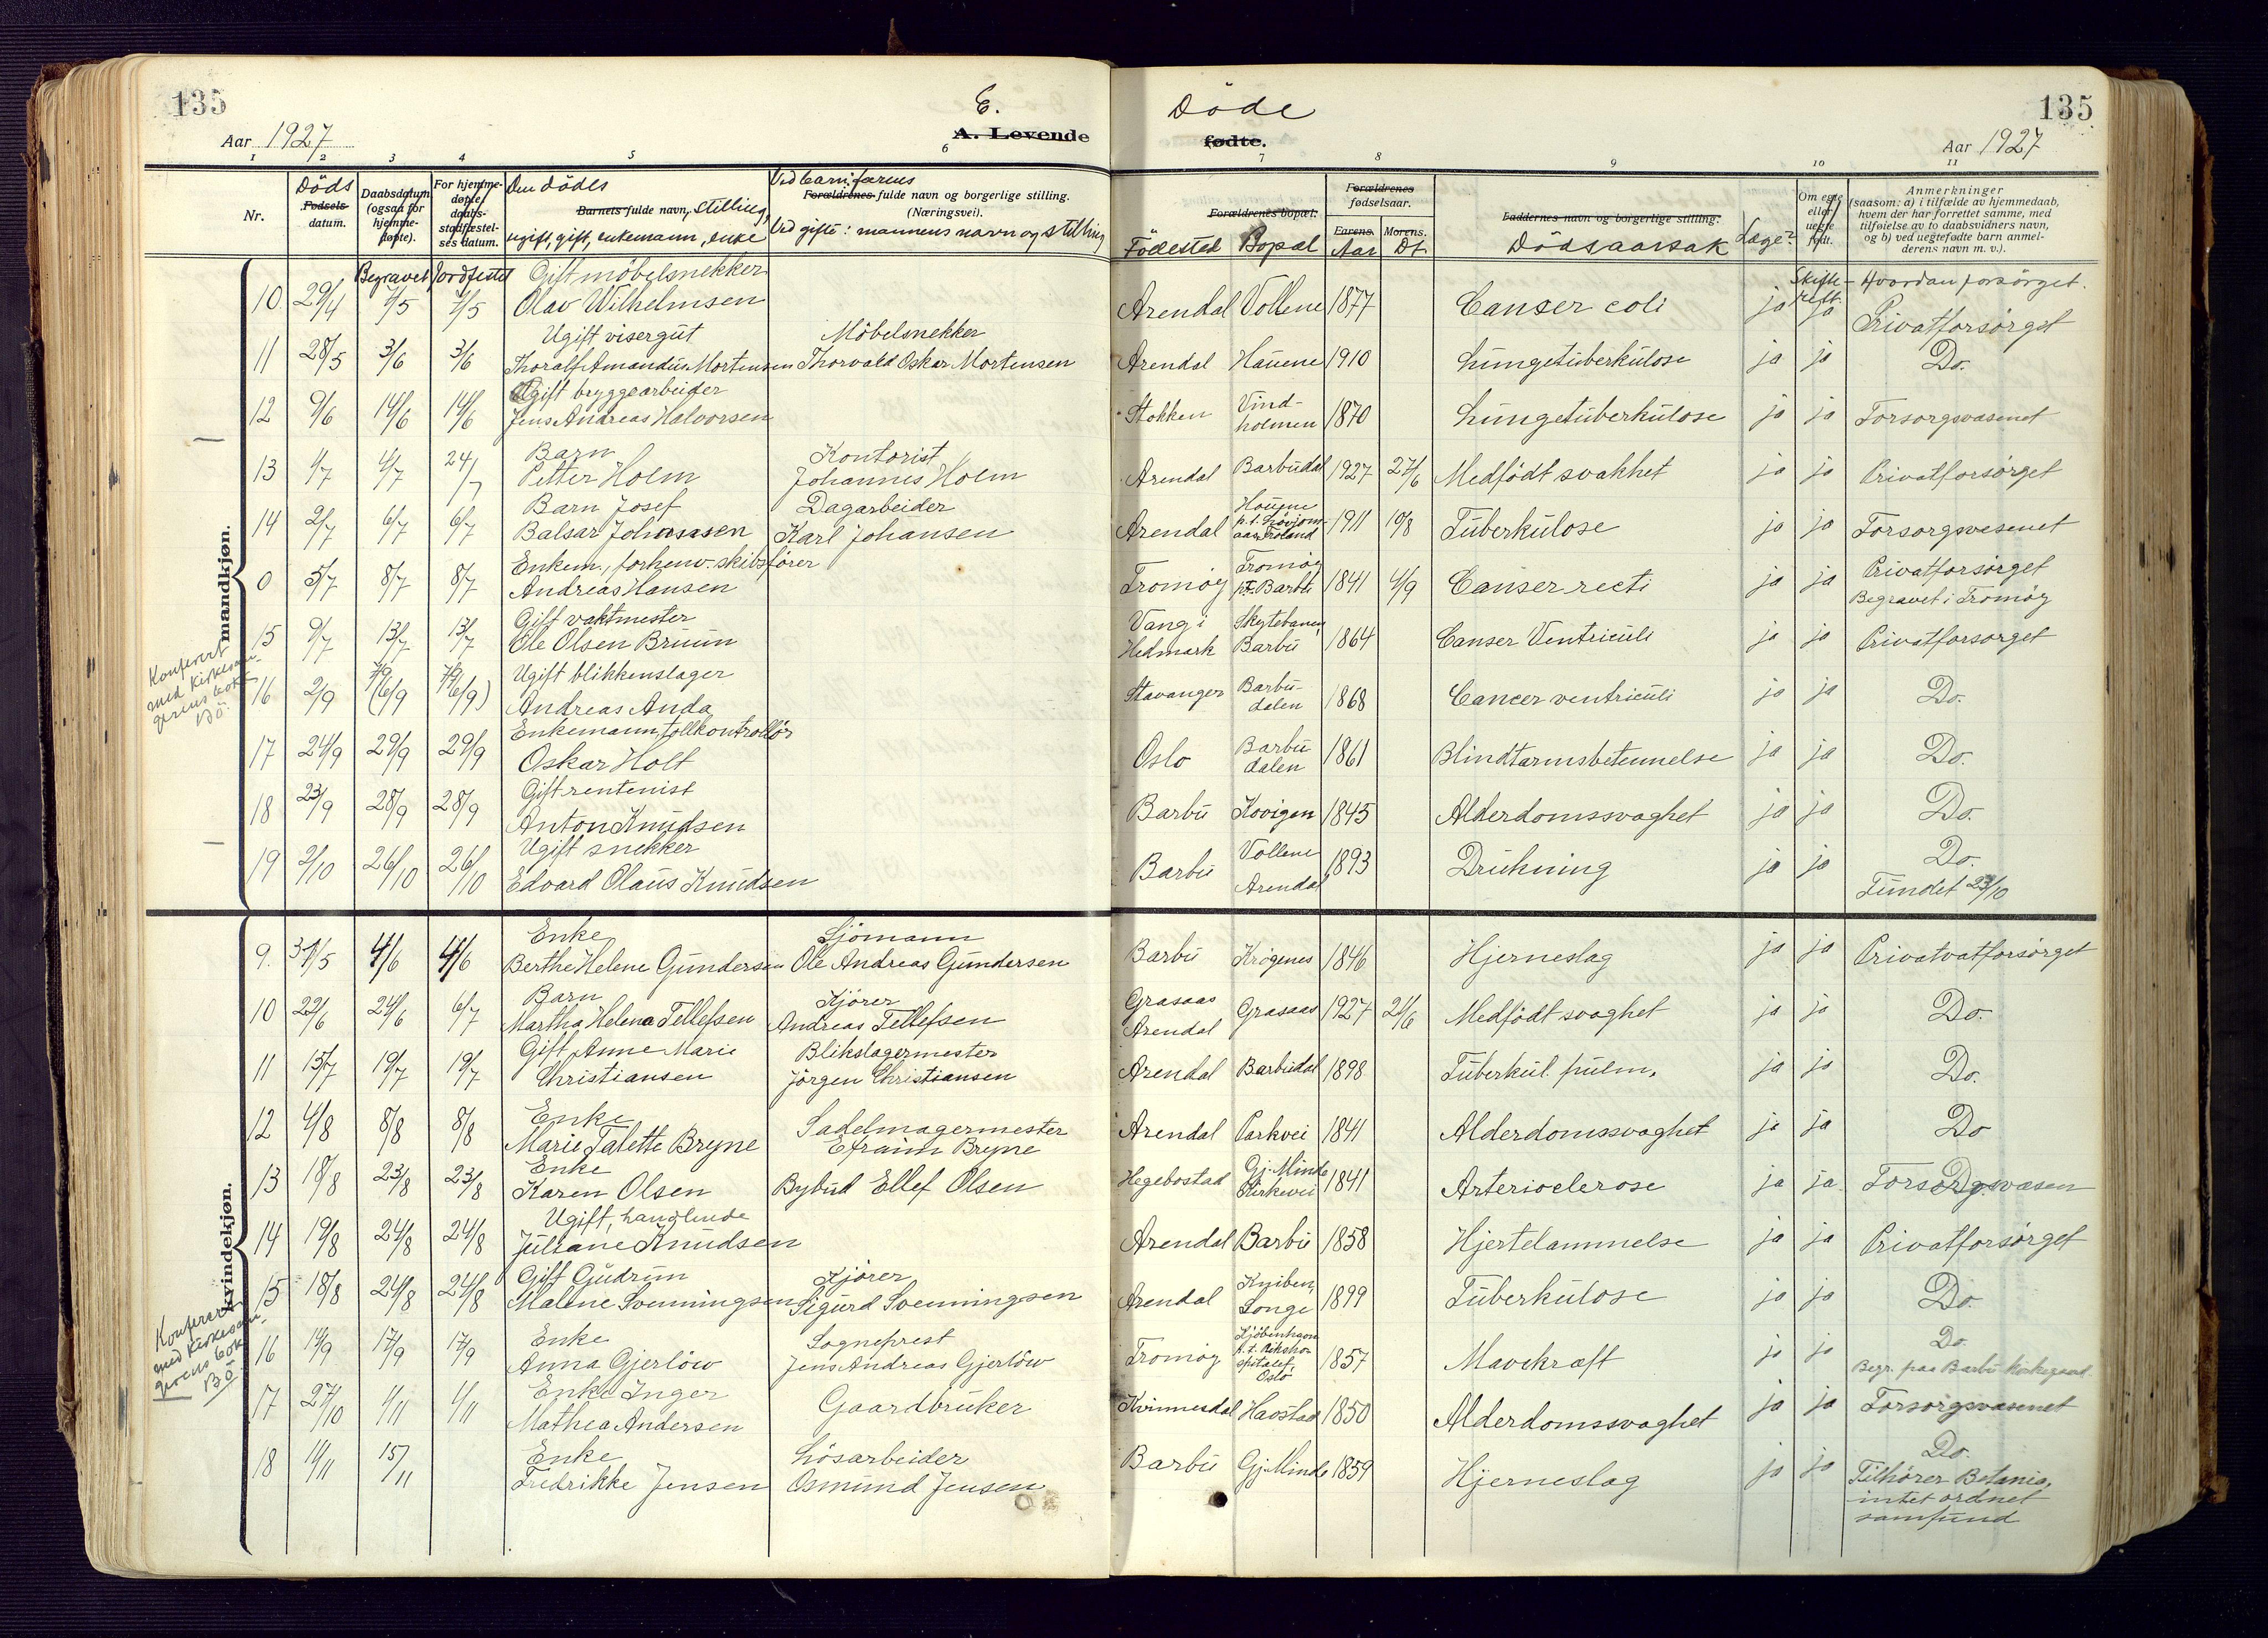 135
Aar 1927
E.
A. Levende
Döde
fødte.
135
Aar 1927
1 2 3 4 5 6 7 8 9 10 11
Nr.
Döds
Fødsels-
datum.
Daabsdatum
(ogsaa for
hjemme-
døpte).
Begravet
For hjemme-
døpte
daabs-
stadfæstel-
ses datum.
Jordfestet
Den dödes
Barnets fulde navn, stilling,
ugift, gift, enkemann, enke
Ved barn: farens
Forældrenes fulde navn og borgerlige stilling.
(Næringsvei).
Ved gifte: mannens navn og stilling
Forældrenes bopæl.
Födested Bopæl
Forældrenes
fødselsaar.
Farens. Morens.
Aar Dt.
Faddernes navn og borgerlige stilling.
Dödsaarsak
Læge?
Om egte
eller
uegte
født.
Skifte-
Anmerkninger
(saasom: a) i tilfælde av hjemmedaab,
hvem der har forrettet samme, med
tilføielse av to daabsvidners navn,
og b) ved uegtefødte barn anmel-
derens navn m. v.).
Hvordan forsörget.
mandkjøn.
Konferert
med kirkesan-
gerens bok
Bö.
10. 29/4 7/5 7/5 Gift möbelsnekker
Olav Wilhelmsen Arendal Vollene 1877 Canser coli ja ja Privatforsörget
11 28/5 3/6 3/6 Ugift visergut Möbelsnekker
Thoralf Amandus Mortensen Thorvald Oskar Mortensen Arendal Hauene 1910 Lungetuberkulose ja ja Do.
12 9/6 14/6 14/6 Ugift bryggearbeider
Jens Andreas Halvorsen Stokken Vind-
holmen 1870 Lungetuberkulose ja ja Forsorgsvæsenet
13 1/7 4/7 24/7 Barn Kontorist
Petter Holm Johannes Holm Arendal Barbudal 1927 27/6 Medfödt svakhet ja ja Privatforsörget
14 2/7 6/7 6/7 Barn Josef Dagarbeider
Balsar Johansen Karl Johansen Arendal Hauene
Froland 1911 10/8 Tuberkulose ja ja Forsorgsvesenet
0 5/7 8/7 8/7 Enkem., forhenv. skibsförer
Andreas Hansen Tromöy Tromöy
p.t. Barbu 1841 4/9 Canser recti ja ja Privatforsörget
Begravet i Tromöy
15 9/7 13/7 13/7 Gift vaktmester
Ole Olsen Bruun Vang i
Hedmark Skytebanen
Barbu 1864 Canser Ventriculi ja ja Privatforsorget
16 2/9 7/9 (6/9 7/9 6/9) Ugift blikkenslager
Andreas Anda Stavanger Barbu-
dalen 1868 Cancer ventriculi ja ja Do.
17 24/9 29/9 29/9 Enkemann, tollkontrollör
Oskar Holt Oslo Barbu
dalen 1861 Blindtarmsbetennelse ja ja Do.
18 23/9 28/9 28/9 Gift rentenist
Anton Knudsen Barbu Kovigen 1845 Alderdomssvaghet ja ja Do.
19 2/10 26/10 26/10 Ugift snekker
Edvard Olaus Knudsen Barbu Vollene
Arendal 1893 Drukning ja ja Do.
Fundet 23/10
kvindekjøn.
Konferert
med kirkesan-
gerens bok
Bö
9. 31/5 4/6 4/6 Enke Sjömann
Berthe Helene Gundersen Ole Andreas Gundersen Barbu Krögenes 1846 Hjerneslag ja ja Privatvatforsörget
10 22/6 24/6 6/7 Barn Kjörer
Martha Helena Tellefsen Andreas Tellefsen Grasaas
Arendal Grasaas 1927 21/6 Medfödt svaghet ja ja Do.
11 15/7 19/7 19/7 Gift, Anne Marie Blikslagermester
Christiansen Jörgen Christiansen Arendal Barbudal 1898 Tuberkul. pulm. ja ja Do.
12 4/8 8/8 8/8 Enke Sadelmagermester
Marie Talette Bryne Efraim Bryne Arendal Parkvei 1841 Alderdomssvaghet ja ja Do
13 18/8 23/8 23/8 Enke
Karen Olsen Bybud Ellef Olsen Hegebostad Gj. Minde
Kirkevei 1841 Arterioclerose ja ja Forsorgsvæsen
14 19/8 24/8 24/8 Ugift, handlende
Juliane Knudsen Arendal Barbu 1858 Hjertelammelse ja ja Privatforsörget
15 18/8 24/8 24/8 Gift Gudrun Kjörer
Malene Svenningsen Sigurd Svenningsen Arendal Kniben,
Songe 1899 Tuberkulose ja ja Do.
16 14/9 17/9 17/9 Enke Sogneprest
Anna Gjerlöw Jens Andreas Gjerlöw Tromöy Kjöbenhavn
p.t. Riksho-
spitalet,
Oslo 1857 Mavekræft ja ja Do.
Begr. paa Barbu kirkegaard.
17 27/10 1/11 1/11 Enke Inger
Mathea Andersen Gaardbruker Kvinnesdal Havstad 1850 Alderdomssvaghet ja ja Forsorgsvæsenet
18 11/11 15/11 Enke Lösarbeider
Fredrikke Jensen Osmund Jensen Barbu Gj. Minde 1859 Hjerneslag ja ja Do.
Tilhörer Betania,
intet ordnet
samfund